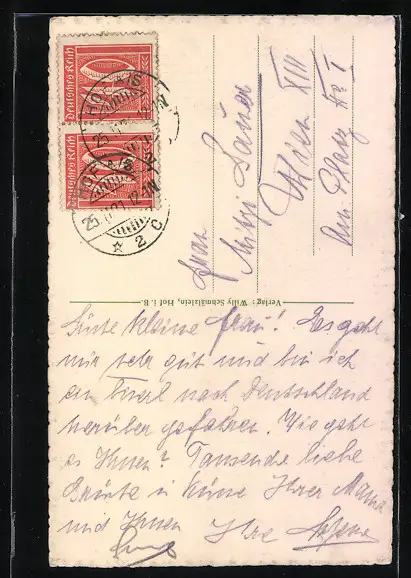 Deutsches Reich
Deutsches Reich
HOF
25.
HOF
25. 21. 12-
2 C
Frau
Mitzi Bauer
Wien XIII
Am Platz No 1
Verlag: Willy Schmälzlein, Hof i. B.
kleine Frau! Es geht
mir sehr gut und bin ich
ein bisserl nach Deutschland
herüber gefahren. Wie geht
es Ihnen? Tausende liebe
Grüsse u Küsse Ihrer Mama
und Ihnen Ihre